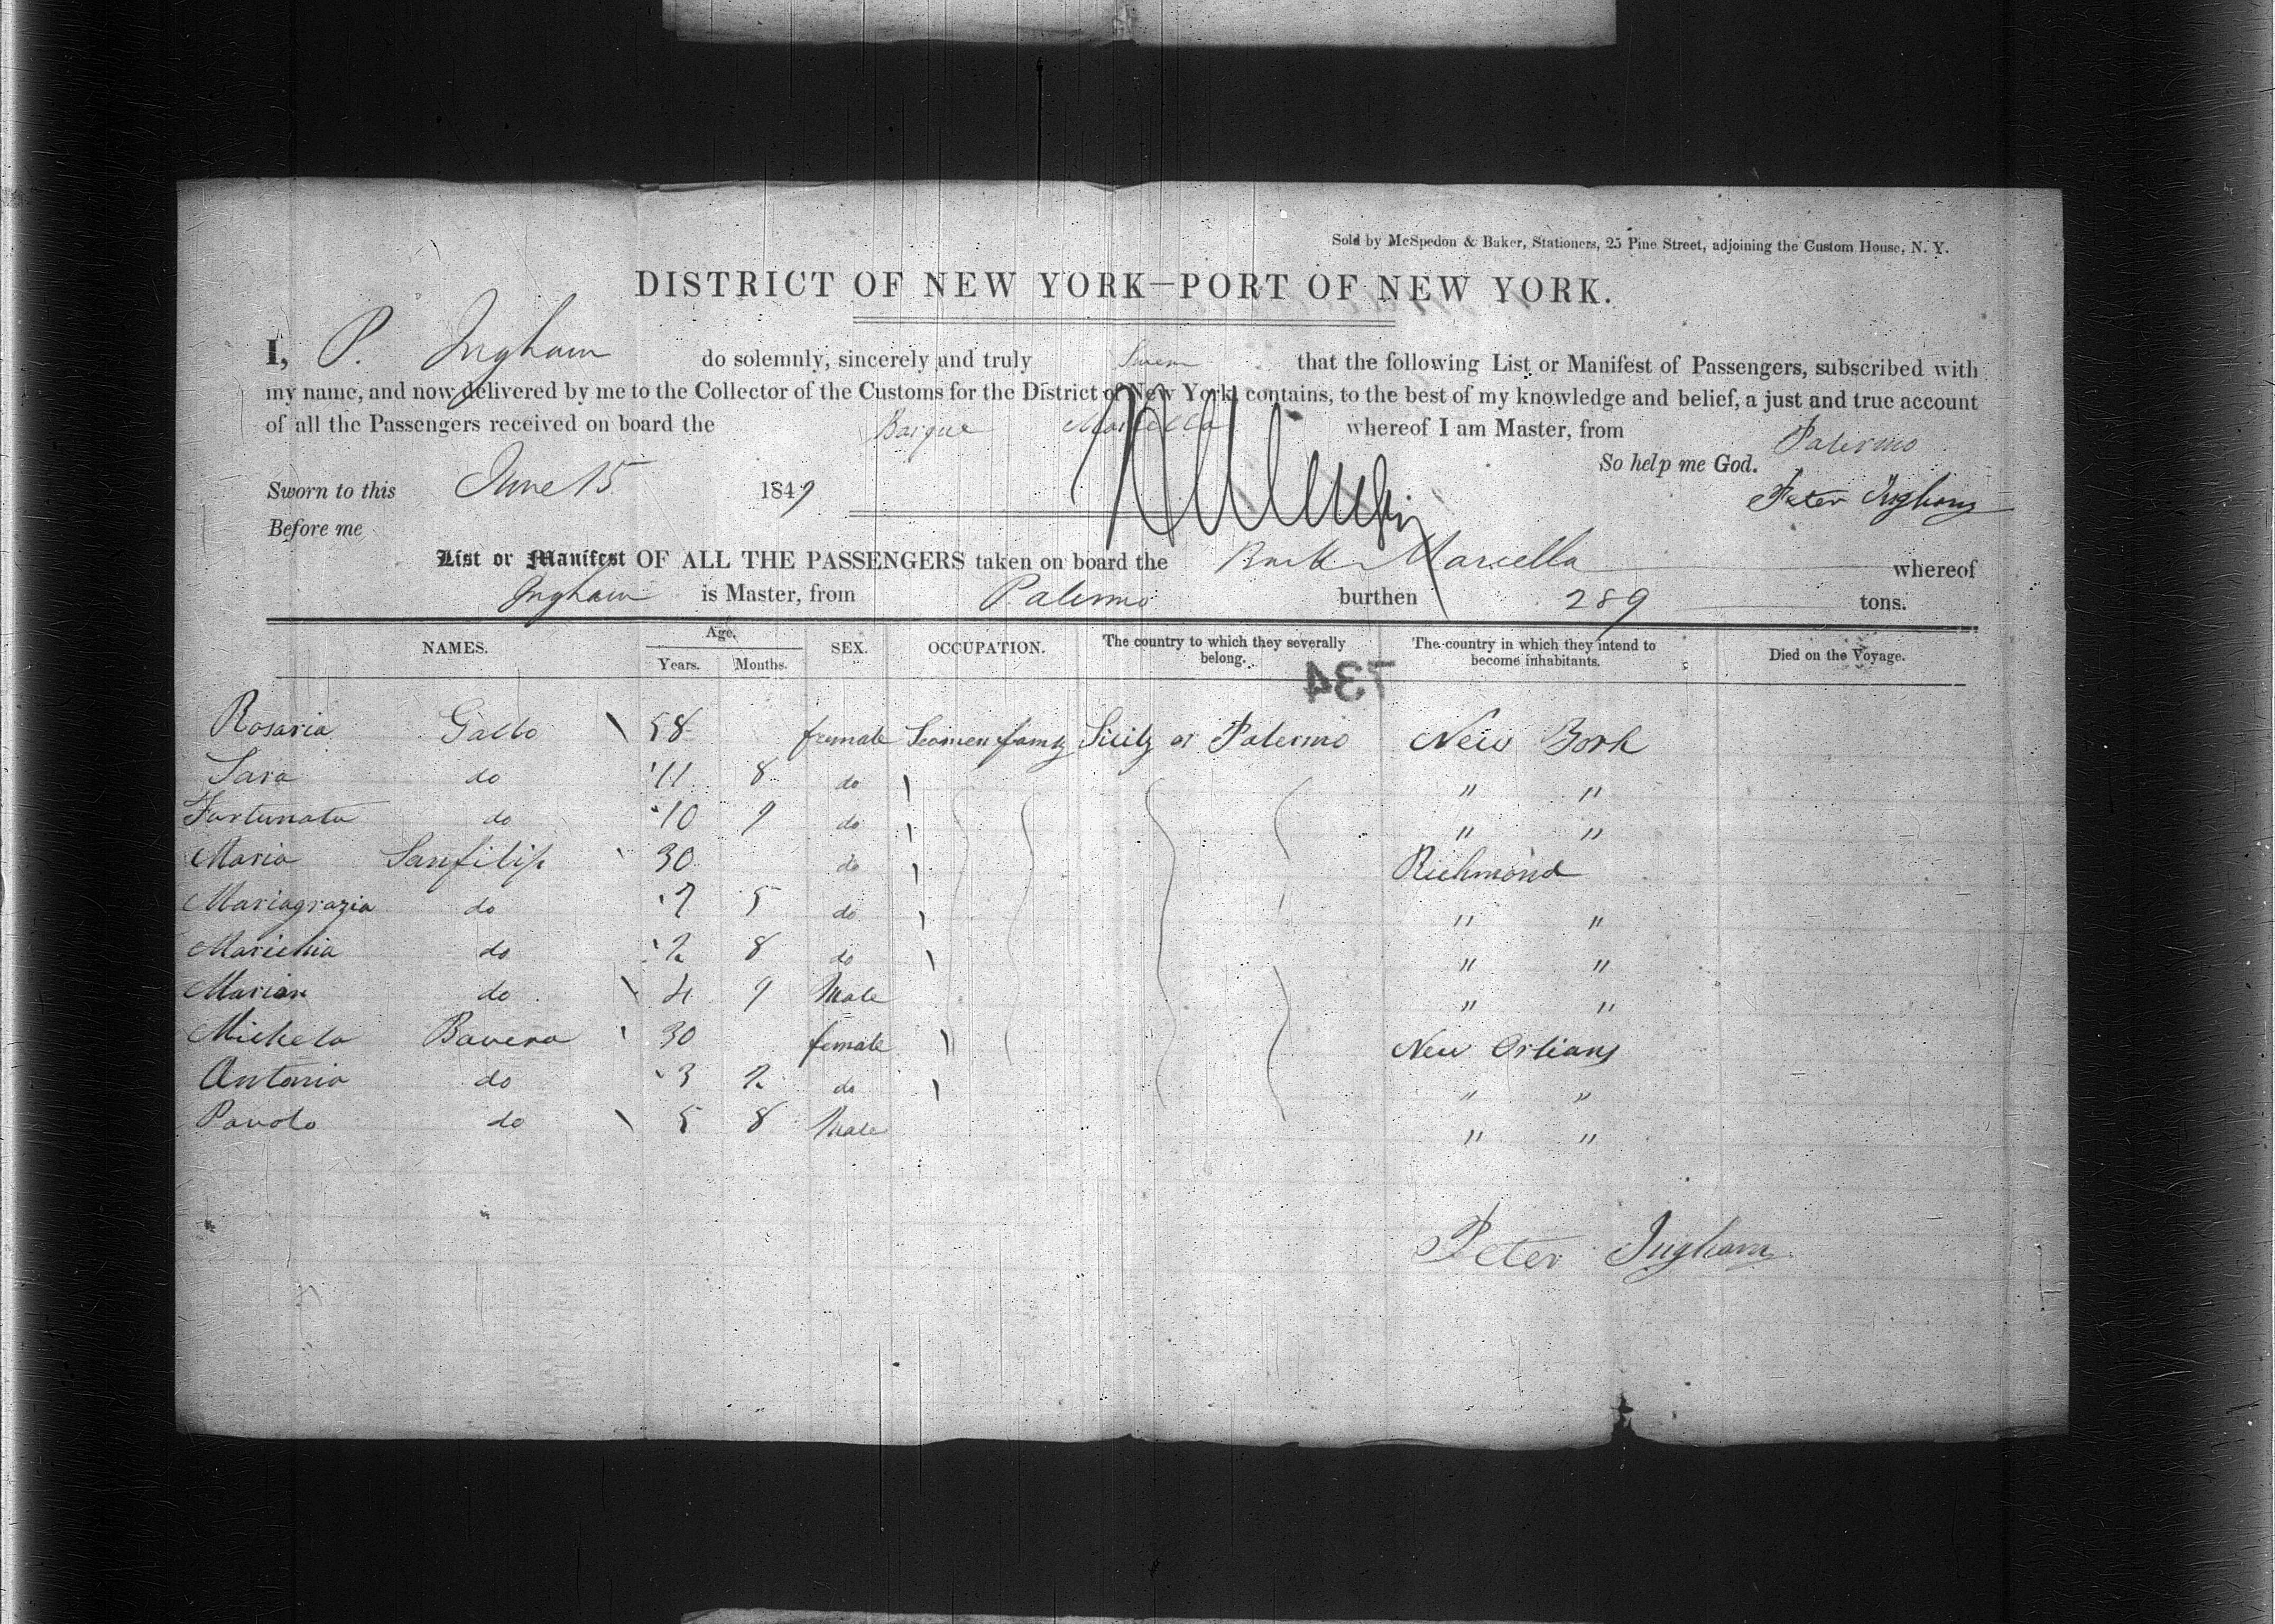 Sold by McSpedon & Baker, Stationers, 25 Pine Street, adjoining the Custom House, N. Y.
DISTRICT OF NEW YORK—PORT OF NEW YORK.
I, P. Ingham do solemnly, sincerely and truly Swear that the following List or Manifest of Passengers, subscribed with
my name, and now delivered by me to the Collector of the Customs for the District of New York, contains, to the best of my knowledge and belief, a just and true account
of all the Passengers received on board the Barque Marcella whereof I am Master, from Palermo
So help me God.
Sworn to this June 15 1849 Peter Ingham
Before me
List or Manifest OF ALL THE PASSENGERS taken on board the Bark Marcella whereof
Ingham is Master, from Palermo burthen 289 tons.
NAMES. Age. Years. Months. SEX. OCCUPATION. The country to which they severally belong. The country in which they intend to become inhabitants. Died on the Voyage.
734
Rosaria Gallo 58 female Seamen family Sicily or Palermo New York
Sara do 11 8 do " "
Fortunata do 10 9 do " "
Maria Sanfilip 30 do Richmond
Mariagrazia do 7 5 do " "
Marichia do 2 8 do " "
Marian do 4 9 Male " "
Michela Bavera 30 female New Orleans
Antonia do 3 2 do " "
Pavolo do 5 8 Male " "
Peter Ingham